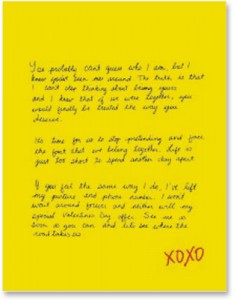 You probably can't guess who I am, but I
know you've seen me around. The truth is that
I can't stop thinking about being yours
and I know that if we were together, you
would finally be treated the way you
deserve.
It's time for us to stop pretending and face
the fact that we belong together. Life is
just too short to spend another day apart.
If you feel the same way I do, I've left
my picture and phone number. I won't
wait around forever and neither will my
special Valentine's Day offer. See me as
soon as you can and let's see where the
road takes us.
XOXO